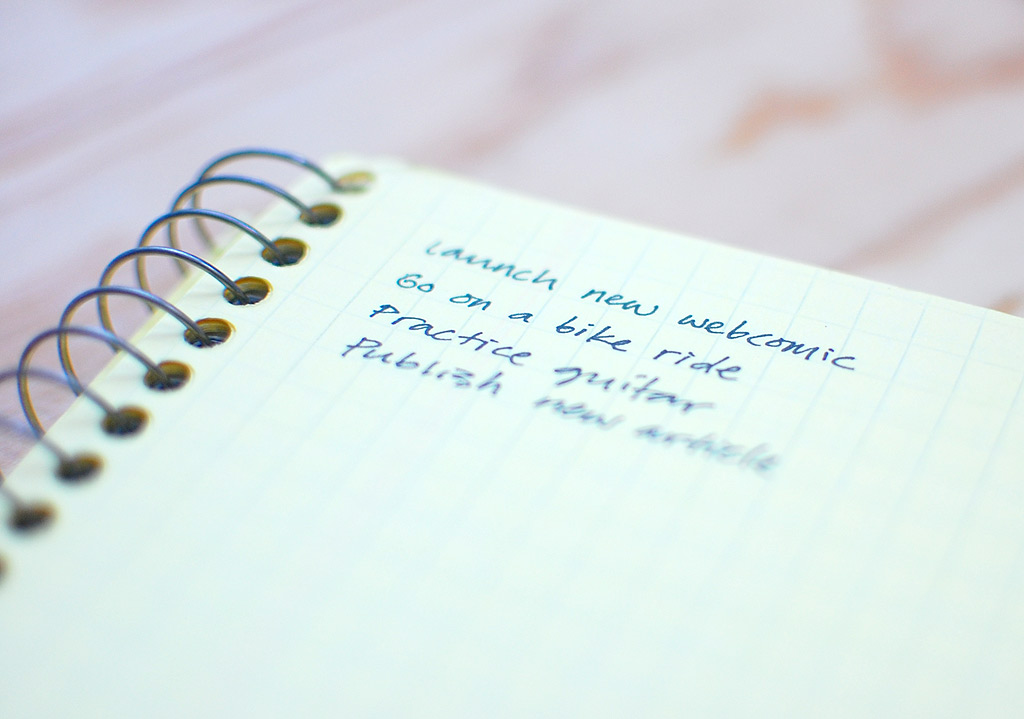 Launch new webcomic
Go on a bike ride
Practice guitar
Publish new article